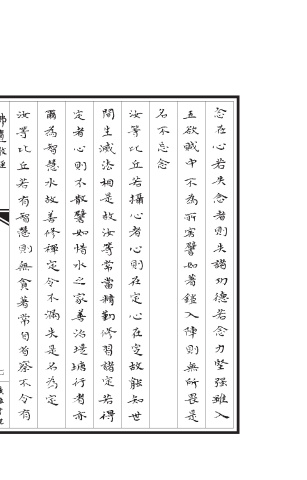 念在心若失念者則失諸功德若念力堅强雖入
五欲賊中不為所害譬如著鎧入陣則無所畏是
名不忘念
汝等比丘若攝心者心則在定心在定故能知世
間生滅法相是故汝等常當精勤修習諸定若得
定者心則不散譬如惜水之家善治堤塘行者亦
爾為智慧水故善修禪定令不漏失是名為定
汝等比丘若有智慧則無貪著常自省察不令有